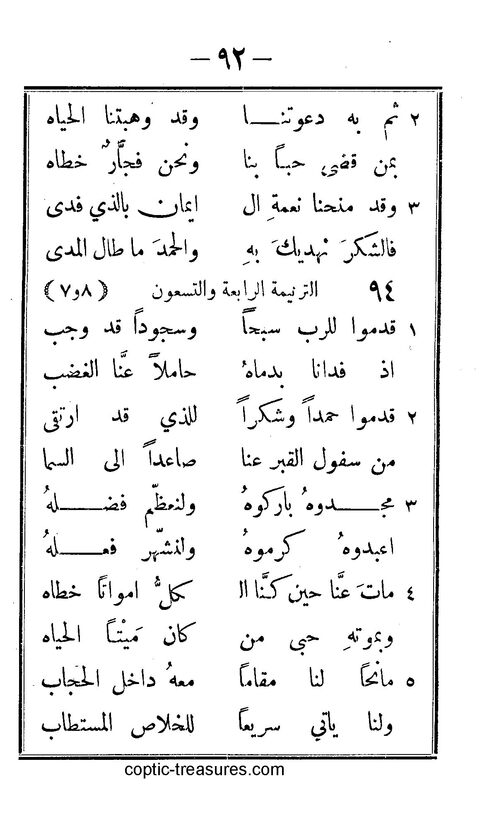 – ٩٢ –
٢ ثم به دعوتنـــا وقد وهبتنا الحياه
بمن قضى حباً بنا ونحن فجَّارٌ خطاه
٣ وقد منحنا نعمة ال ايمان بالذي فدى
فالشكرَ نهديكَ بهِ والحمدَ ما طال المدى
٩٤ الترنيمة الرابعة والتسعون (٨و٧)
١ قدموا للرب سبحاً وسجوداً قد وجب
اذ فدانا بدماهُ حاملاً عنَّا الغضب
٢ قدموا حمداً وشكراً للذي قد ارتقى
من سفول القبر عنا صاعداً الى السما
٣ مجـــدوهُ باركوهُ ولنعظّم فضـــلهُ
اعبدوهُ كرموهُ ولنشهّر فعـــلهُ
٤ ماتَ عنَّا حين كنَّا ال كلُّ امواتاً خطاه
وبموتهِ حبى من كان مَيْتاً الحياه
٥ مانحاً لنا مقاماً معهُ داخل الحجاب
ولنا ياتي سريعاً للخلاص المستطاب
coptic-treasures.com